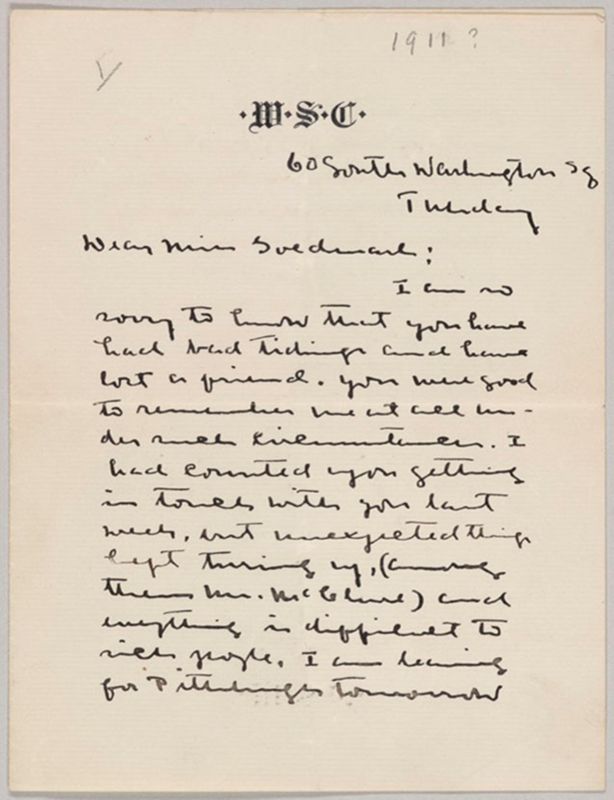 1911?
V
·W·S·C·
60 South Washington Sq
Tuesday
Dear Miss Goldmark;
I am so
sorry to know that you have
had bad tidings and have
lost a friend. You were good
to remember me at all un-
der such circumstances. I
had counted upon getting
in touch with you last
week, but unexpected things
kept turning up, (among
them Mr. McClure) and
everything is difficult to
sick people. I am leaving
for Pittsburgh tomorrow